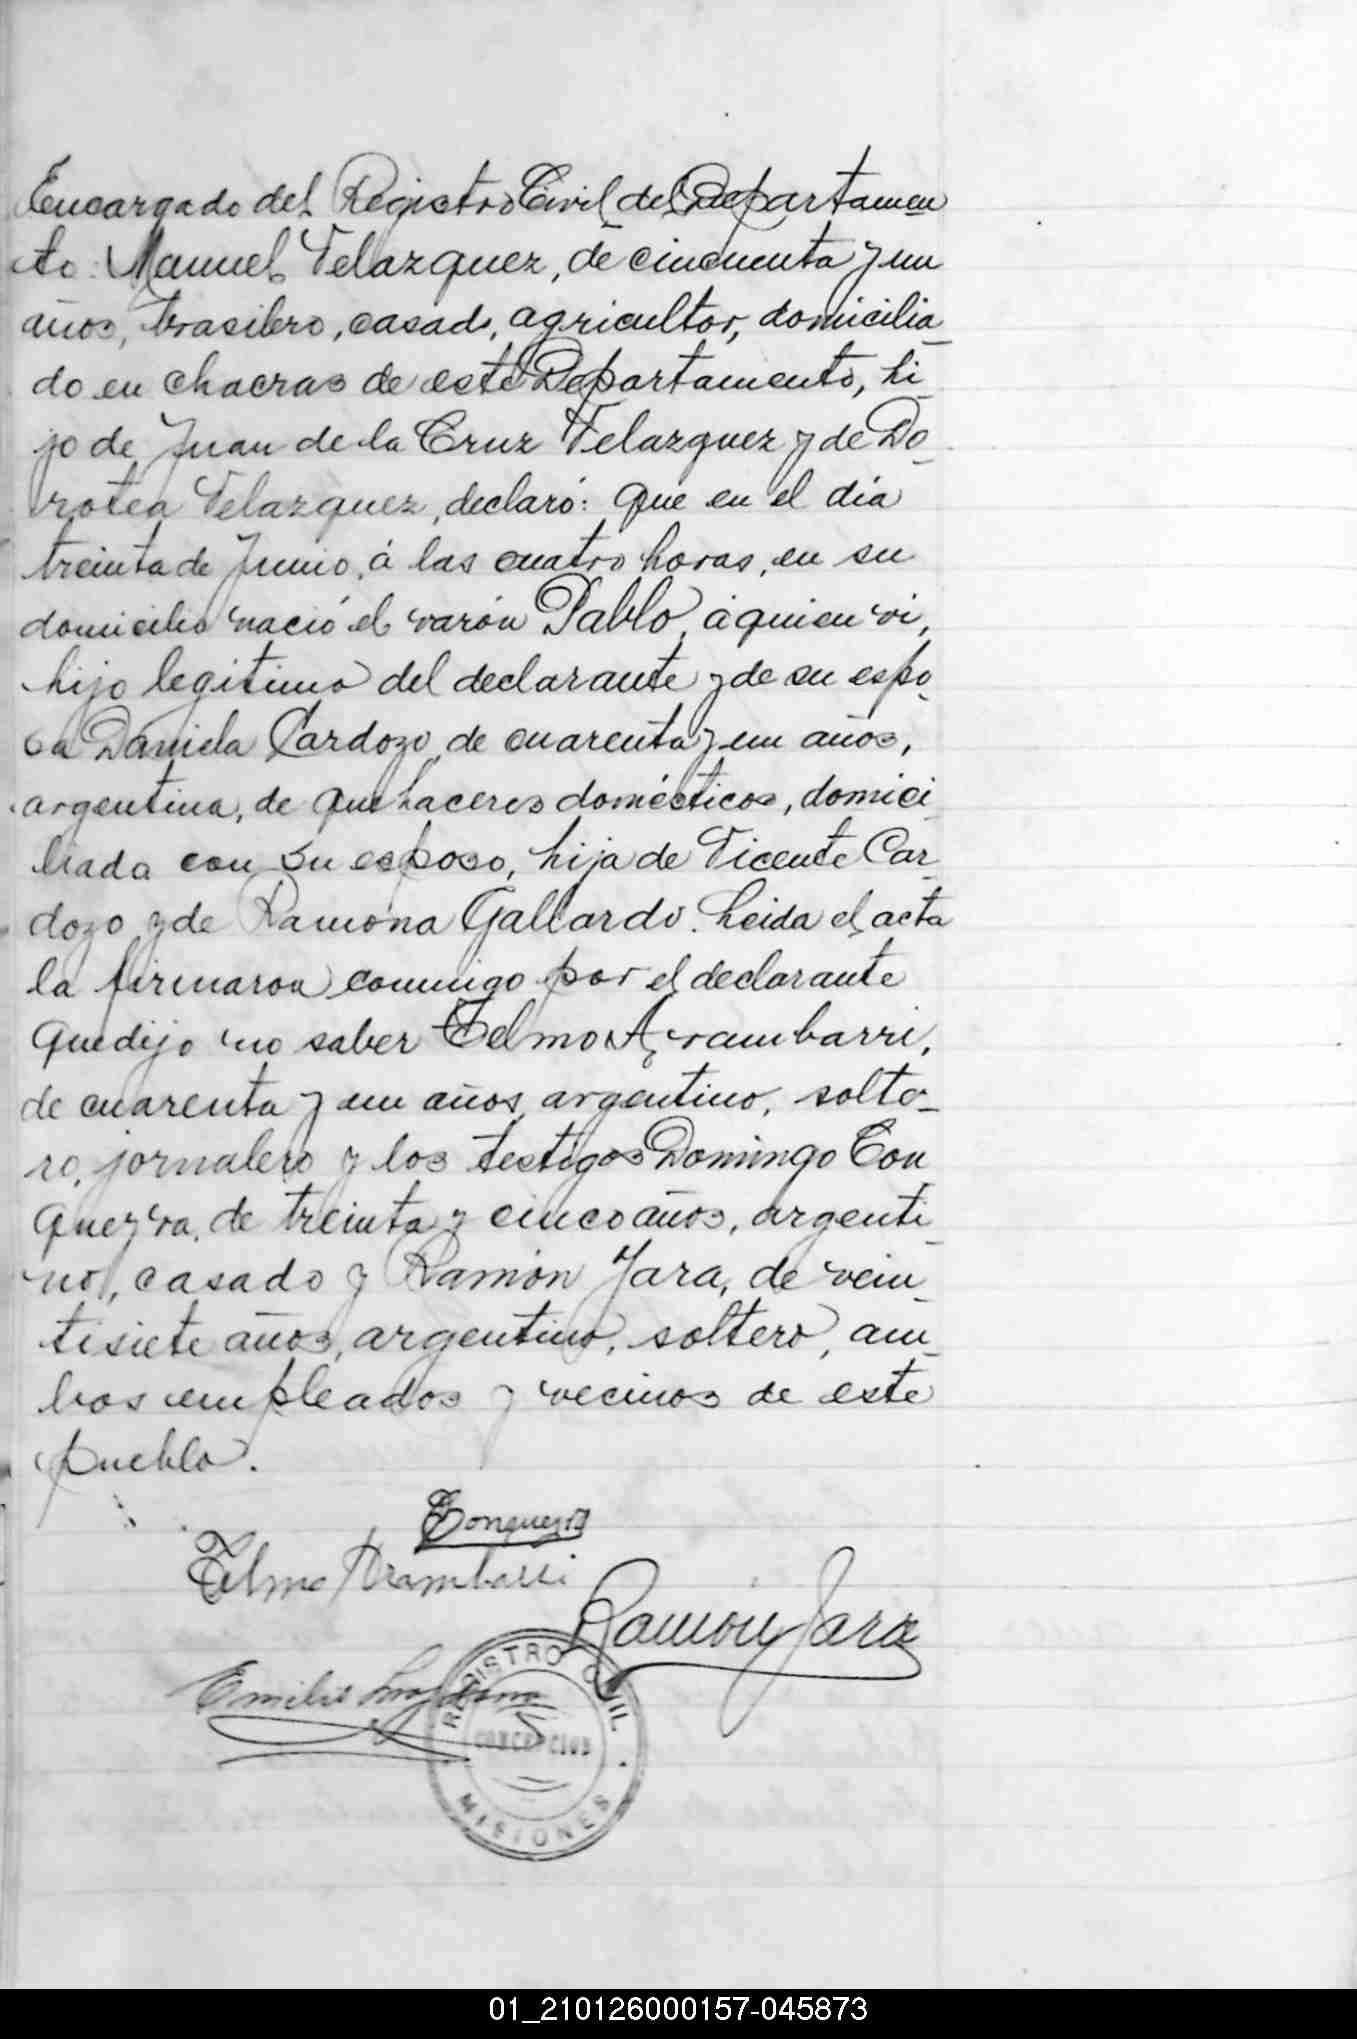 Encargado del Registro Civil del Departamen
to: Manuel Velazquez, de cincuenta y un
años, brasilero, casado, agricultor, domicilia_
do en chacras de este Departamento, hi_
jo de Juan de la Cruz Velazquez y de Do_
rotea Velazquez, declaró: Que en el día
treinta de Junio, á las cuatro horas, en su
domicilio nació el varón Pablo, á quien vi,
hijo legitimo del declarante y de su espo_
sa Daniela Cardozo, de cuarenta y un años,
argentina, de quehaceres domésticos, domici_
liada con su esposo, hija de Vicente Car_
dozo y de Ramona Gallardo. Leida el acta
la firmaron conmigo por el declarante
que dijo no saber Telmo Arrambarri,
de cuarenta y un años, argentino, solte_
ro, jornalero y los testigos Domingo Con
queyra, de treinta y cinco años, argenti_
no, casado y Ramón Jara, de vein_
tisiete años, argentino, soltero, am_
bos empleados y vecinos de este
pueblo.
Telmo Arambarri
Ramón Jara
Emilio
REGISTRO CIVIL
CONCEPCION
MISIONES
01_210126000157-045873